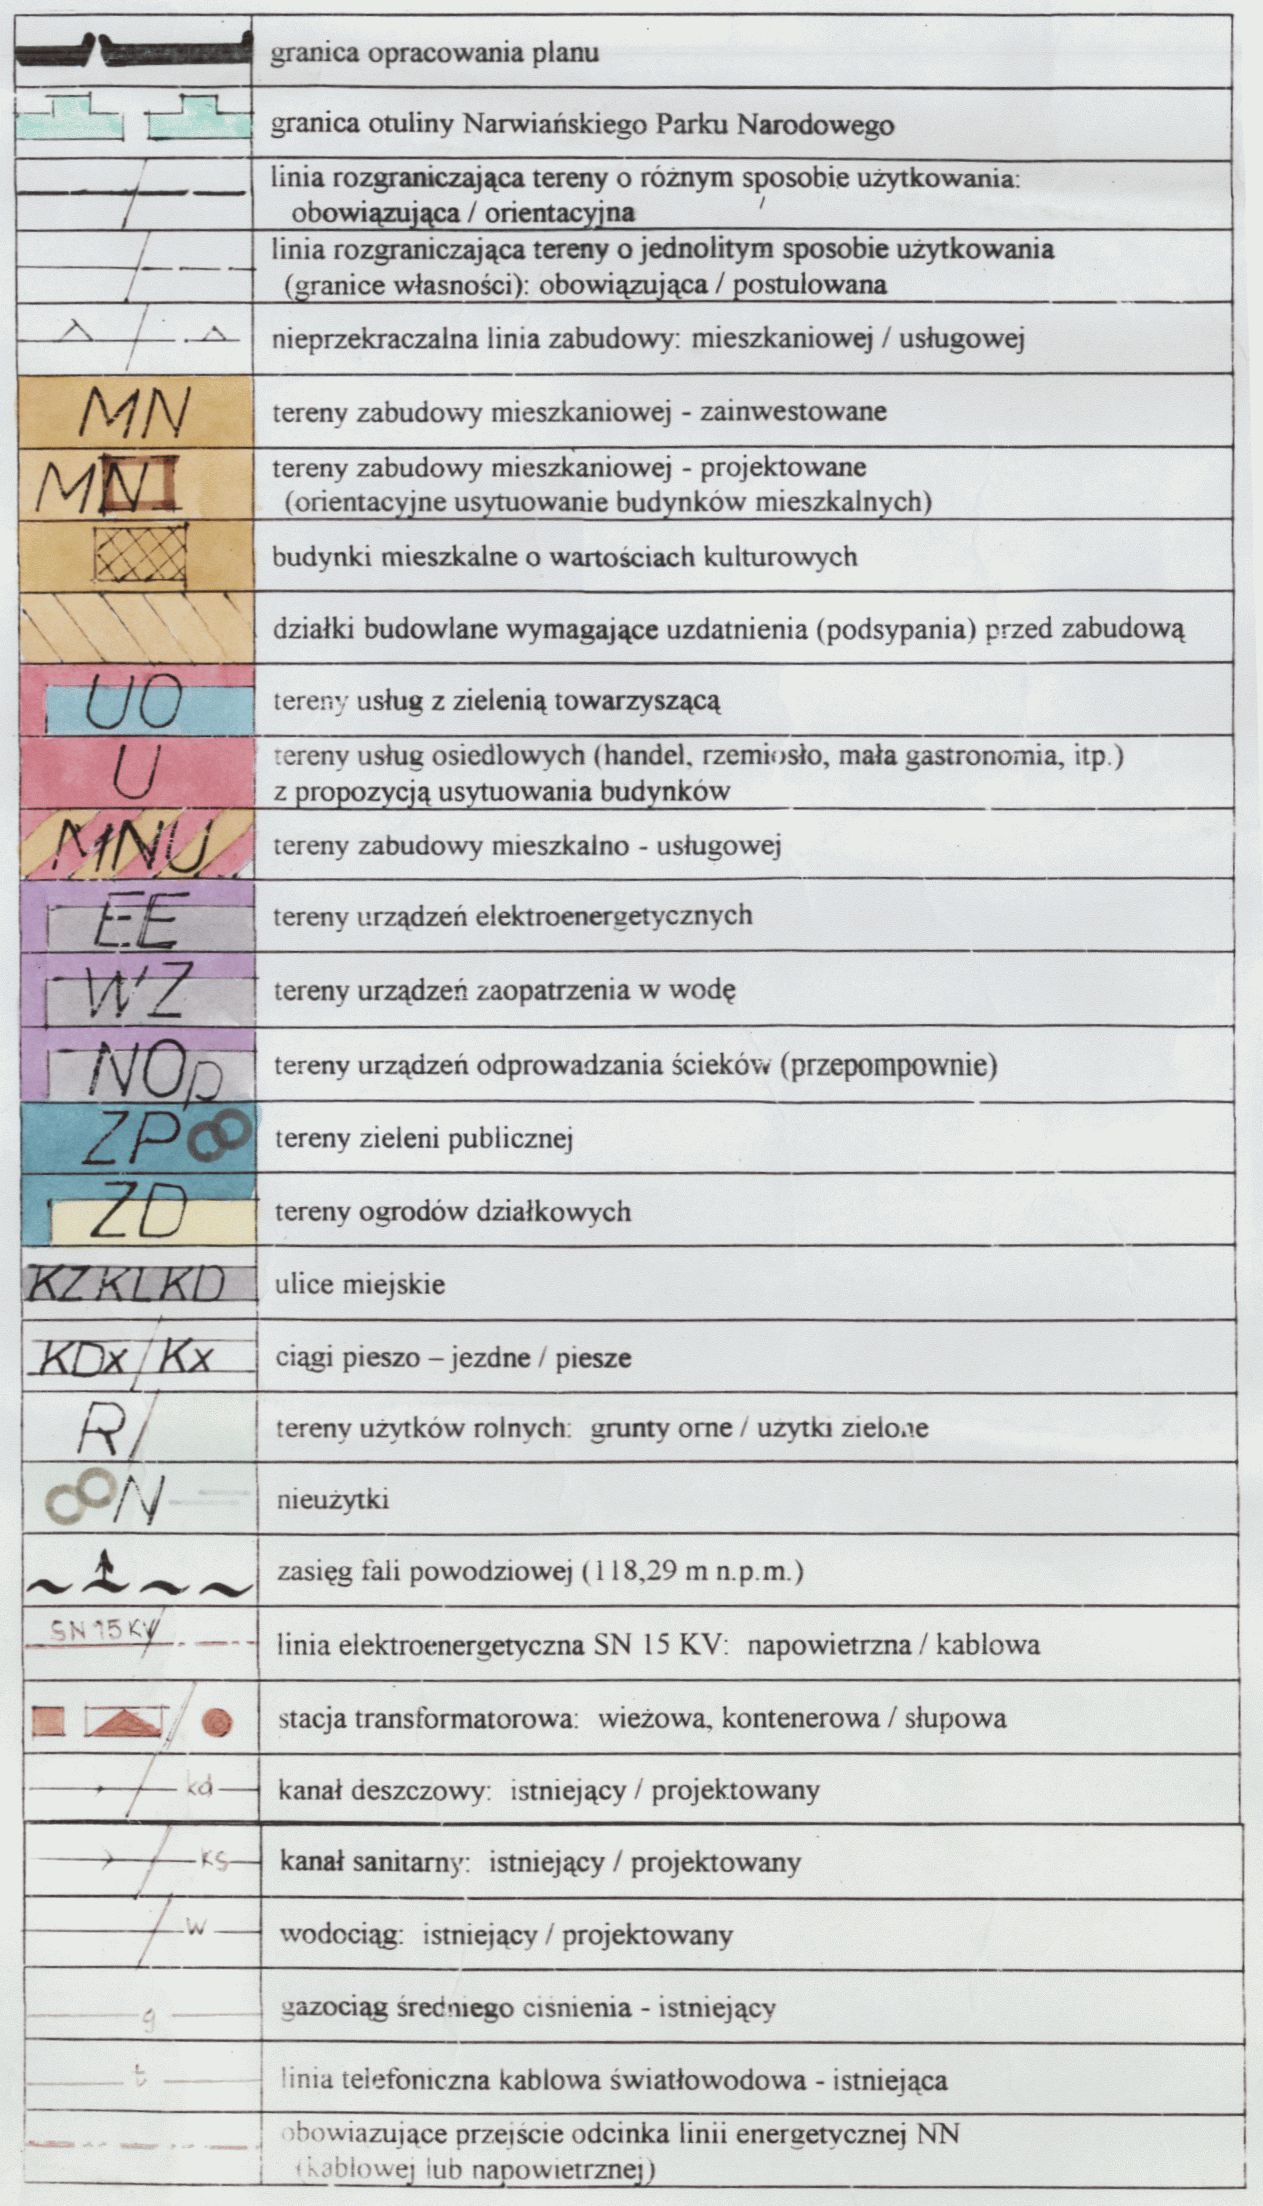 granica opracowania planu
granica otuliny Narwiańskiego Parku Narodowego
linia rozgraniczająca tereny o różnym sposobie użytkowania:
obowiązująca / orientacyjna
linia rozgraniczająca tereny o jednolitym sposobie użytkowania
(granice własności): obowiązująca / postulowana
nieprzekraczalna linia zabudowy: mieszkaniowej / usługowej
MN tereny zabudowy mieszkaniowej - zainwestowane
MN tereny zabudowy mieszkaniowej - projektowane
(orientacyjne usytuowanie budynków mieszkalnych)
budynki mieszkalne o wartościach kulturowych
działki budowlane wymagające uzdatnienia (podsypania) przed zabudową
UO tereny usług z zielenią towarzyszącą
U tereny usług osiedlowych (handel, rzemiosło, mała gastronomia, itp.)
z propozycją usytuowania budynków
MNU tereny zabudowy mieszkalno - usługowej
EE tereny urządzeń elektroenergetycznych
WZ tereny urządzeń zaopatrzenia w wodę
NOp tereny urządzeń odprowadzania ścieków (przepompownie)
ZP tereny zieleni publicznej
ZD tereny ogrodów działkowych
KZ KL KD ulice miejskie
KDx / Kx ciągi pieszo – jezdne / piesze
R / tereny użytków rolnych: grunty orne / użytki zielone
N nieużytki
zasięg fali powodziowej (118,29 m n.p.m.)
SN 15 KV linia elektroenergetyczna SN 15 KV: napowietrzna / kablowa
stacja transformatorowa: wieżowa, kontenerowa / słupowa
kd kanał deszczowy: istniejący / projektowany
ks kanał sanitarny: istniejący / projektowany
w wodociąg: istniejący / projektowany
g gazociąg średniego ciśnienia - istniejący
t linia telefoniczna kablowa światłowodowa - istniejąca
obowiązujące przejście odcinka linii energetycznej NN
(kablowej lub napowietrznej)